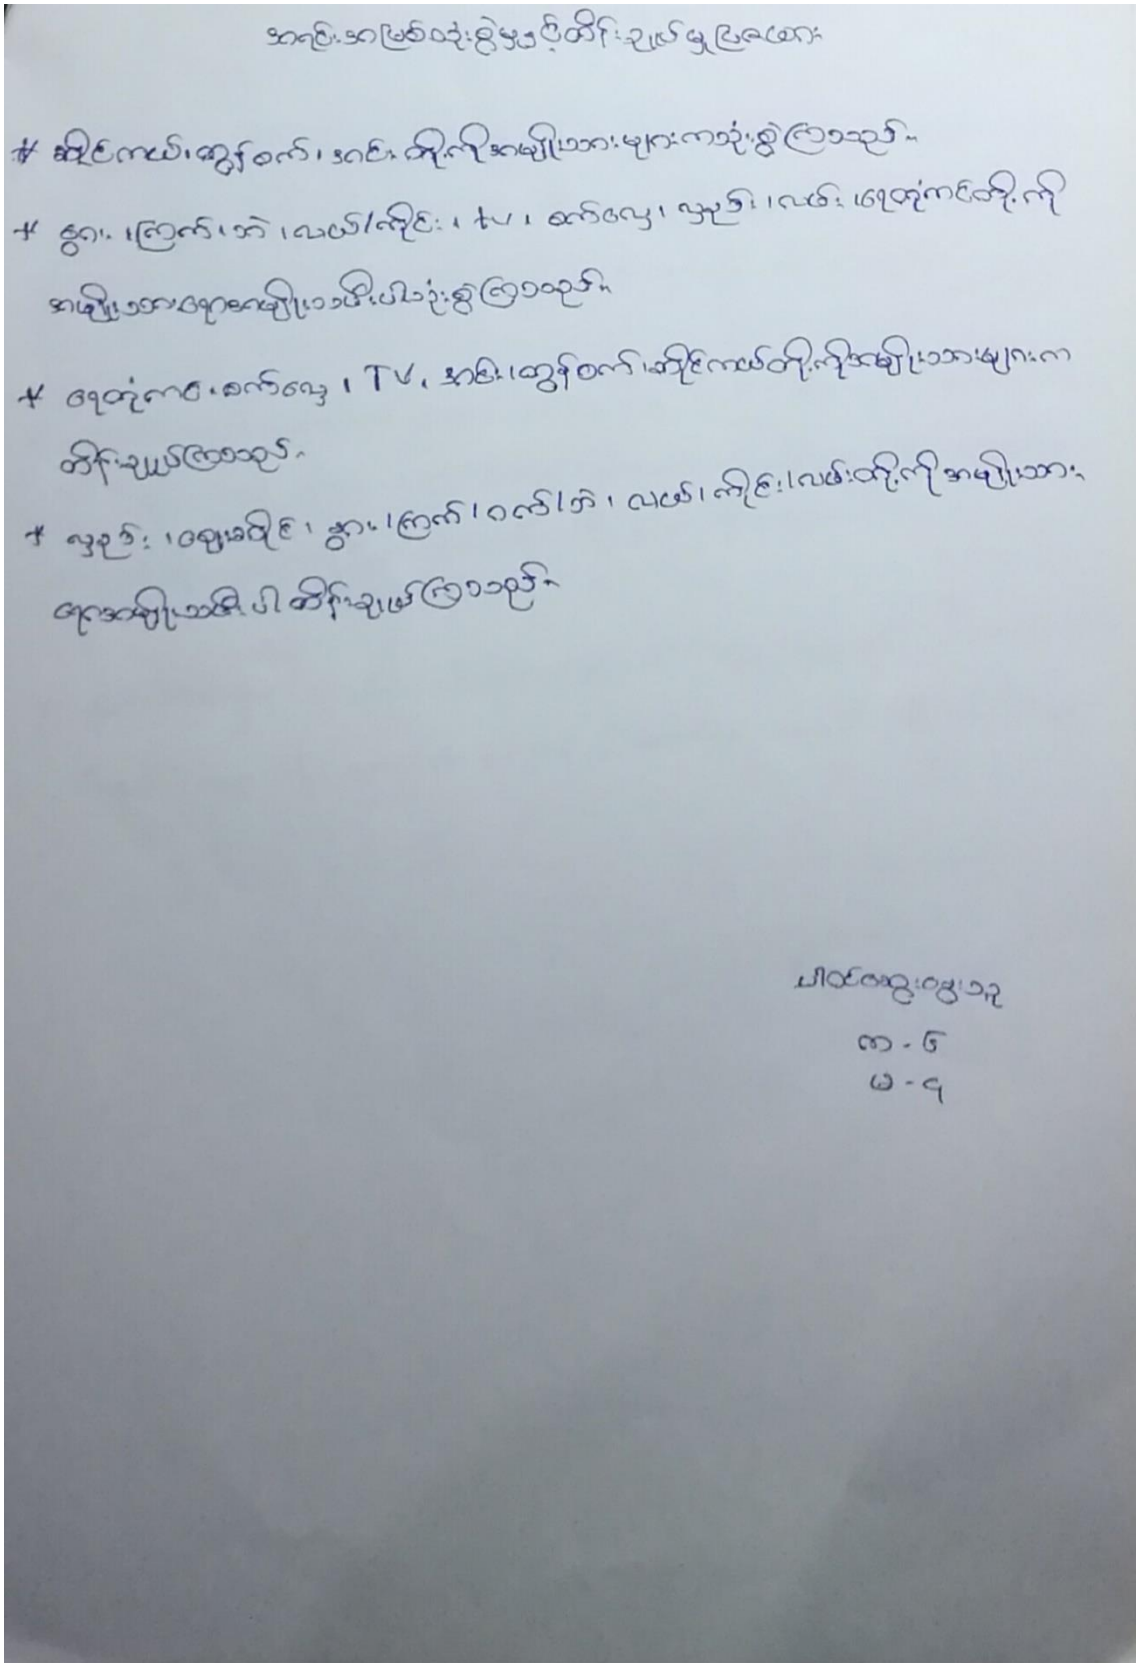 အရင်းအမြစ်သုံးစွဲမှုနှင့်ထိန်းချုပ်မှုပြဇယား
* ဆိုင်ကယ်၊ ထွန်စက်၊ အင်း တို့ကိုအမျိုးသားများကသုံးစွဲကြသည်။
* နွား၊ ကြက်၊ ဘဲ၊ လယ်/ကိုင်း၊ tv၊ စက်လှေ၊ လှည်း၊ လမ်း၊ ရေတုံကင်တို့ကို
အမျိုးသားရောအမျိုးသမီးပါသုံးစွဲကြသည်။
* ရေတုံကင်၊ စက်လှေ၊ TV၊ အင်း၊ ထွန်စက်၊ ဆိုင်ကယ်တို့ကိုအမျိုးသားများက
ထိန်းချုပ်ကြသည်။
* လှည်း၊ နွား၊ ကြက်၊ ဝက်၊ ဘဲ၊ လယ်၊ ကိုင်း၊ လမ်းတို့ကိုအမျိုးသား
ရောအမျိုးသမီးပါ ထိန်းချုပ်ကြသည်။
ပါဝင်ဆွေးနွေးသူ
ကာ - ၆
မ - ၄